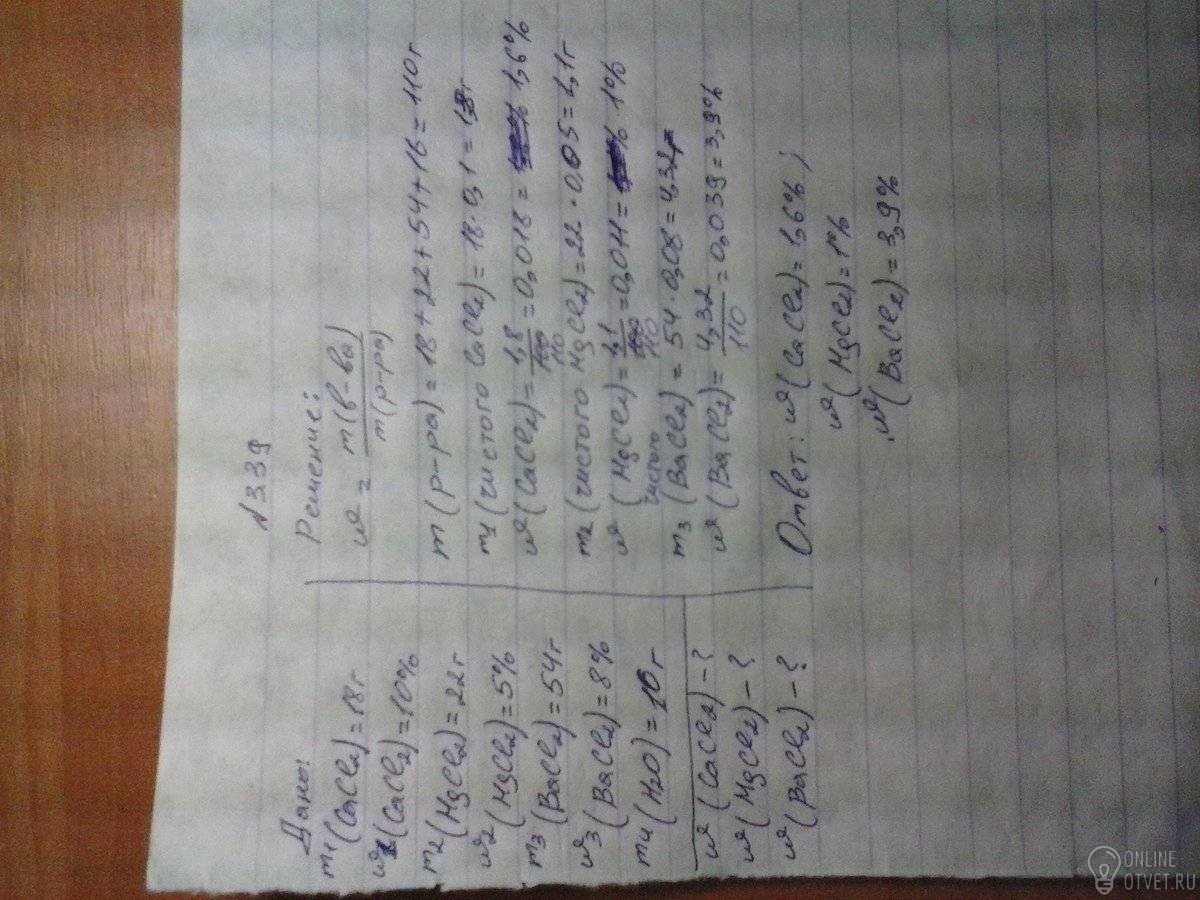 N 339
Дано:
m1(CaCl2)=18г
w1(CaCl2)=10%
m2(MgCl2)=22г
w2(MgCl2)=5%
m3(BaCl2)=54г
w3(BaCl2)=8%
m4(H2O)=16г
w(CaCl2)-?
w(MgCl2)-?
w(BaCl2)-?
Решение:
w = m(в-ва)/m(р-ра)
m(р-ра)=18+22+54+16=110г
m1(чистого CaCl2)=18·0,1=1,8г
w(CaCl2)=1,8/110=0,016=1,6%
m2(чистого MgCl2)=22·0,05=1,1г
w(MgCl2)=1,1/110=0,011=1%
m3(чистого BaCl2)=54·0,08=4,32г
w(BaCl2)=4,32/110=0,039=3,9%
Ответ: w(CaCl2)=1,6%;
w(MgCl2)=1%
w(BaCl2)=3,9%
ONLINE
OTVET.RU